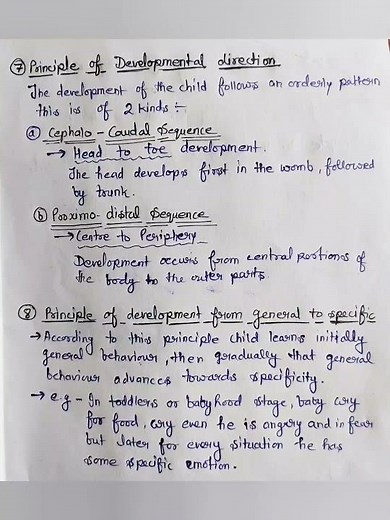 ⑦ Principle of Developmental direction
The development of the child follows an orderly pattern
this is of 2 kinds :-
ⓐ Cephalo - Caudal Sequence
→ Head to toe development.
The head develops first in the womb, followed
by trunk.
ⓑ Proximo-distal Sequence
→ Centre to Periphery
Development occurs from central portions of
the body to the outer parts.
⑧ Principle of development from general to specific
→ According to this principle child learns initially
general behaviour, then gradually that general
behaviour advances towards specificity.
→ e.g - In toddlers or babyhood stage, baby cry
for food, cry even he is angry and in fear
but later for every situation he has
some specific emotion.